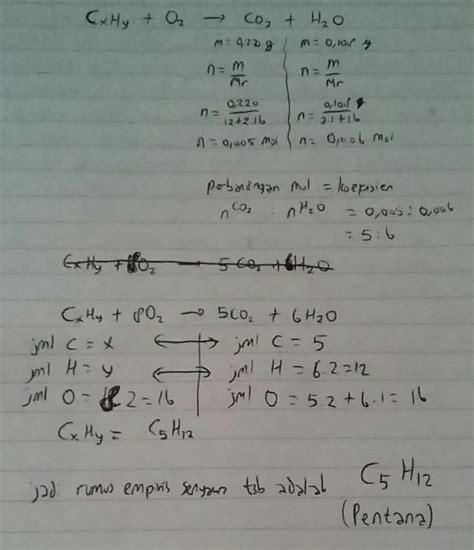 CxHy + O2 → CO2 + H2O
m = 0,220 g m = 0,108 g
n = m/Mr n = m/Mr
n = 0,220/12+2.16 n = 0,108/2.1+16
n = 0,005 mol n = 0,006 mol
perbandingan mol = koefisien
nCO2 : nH2O = 0,005 : 0,006
= 5 : 6
CxHy + 8O2 → 5CO2 + 6H2O
CxHy + 8O2 → 5CO2 + 6H2O
jml C = x ↔ jml C = 5
jml H = y ↔ jml H = 6.2 = 12
jml O = 8.2 = 16 jml O = 5.2 + 6.1 = 16
CxHy = C5H12
jadi rumus empiris senyawa tsb adalah C5H12
(Pentana)